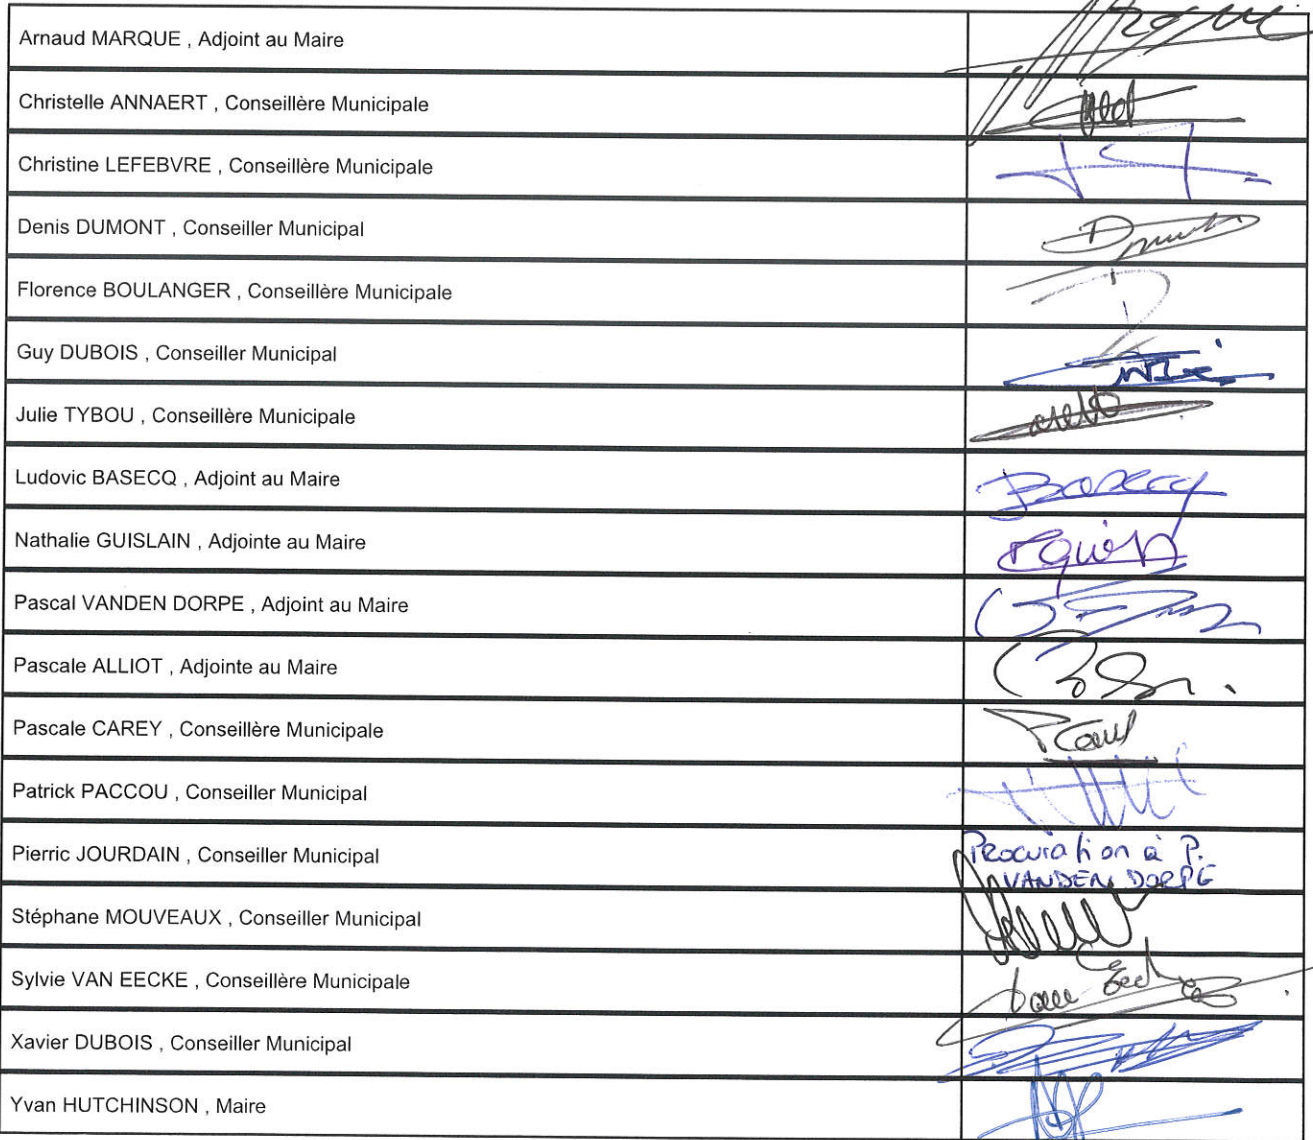 Arnaud MARQUE , Adjoint au Maire
Christelle ANNAERT , Conseillère Municipale
Christine LEFEBVRE , Conseillère Municipale
Denis DUMONT , Conseiller Municipal
Florence BOULANGER , Conseillère Municipale
Guy DUBOIS , Conseiller Municipal
Julie TYBOU , Conseillère Municipale
Ludovic BASECQ , Adjoint au Maire
Basecq
Nathalie GUISLAIN , Adjointe au Maire
Pascal VANDEN DORPE , Adjoint au Maire
Pascale ALLIOT , Adjointe au Maire
Pascale CAREY , Conseillère Municipale
Patrick PACCOU , Conseiller Municipal
Pierric JOURDAIN , Conseiller Municipal
Procuration à P.
VANDEN DORPE
Stéphane MOUVEAUX , Conseiller Municipal
Sylvie VAN EECKE , Conseillère Municipale
Xavier DUBOIS , Conseiller Municipal
Yvan HUTCHINSON , Maire